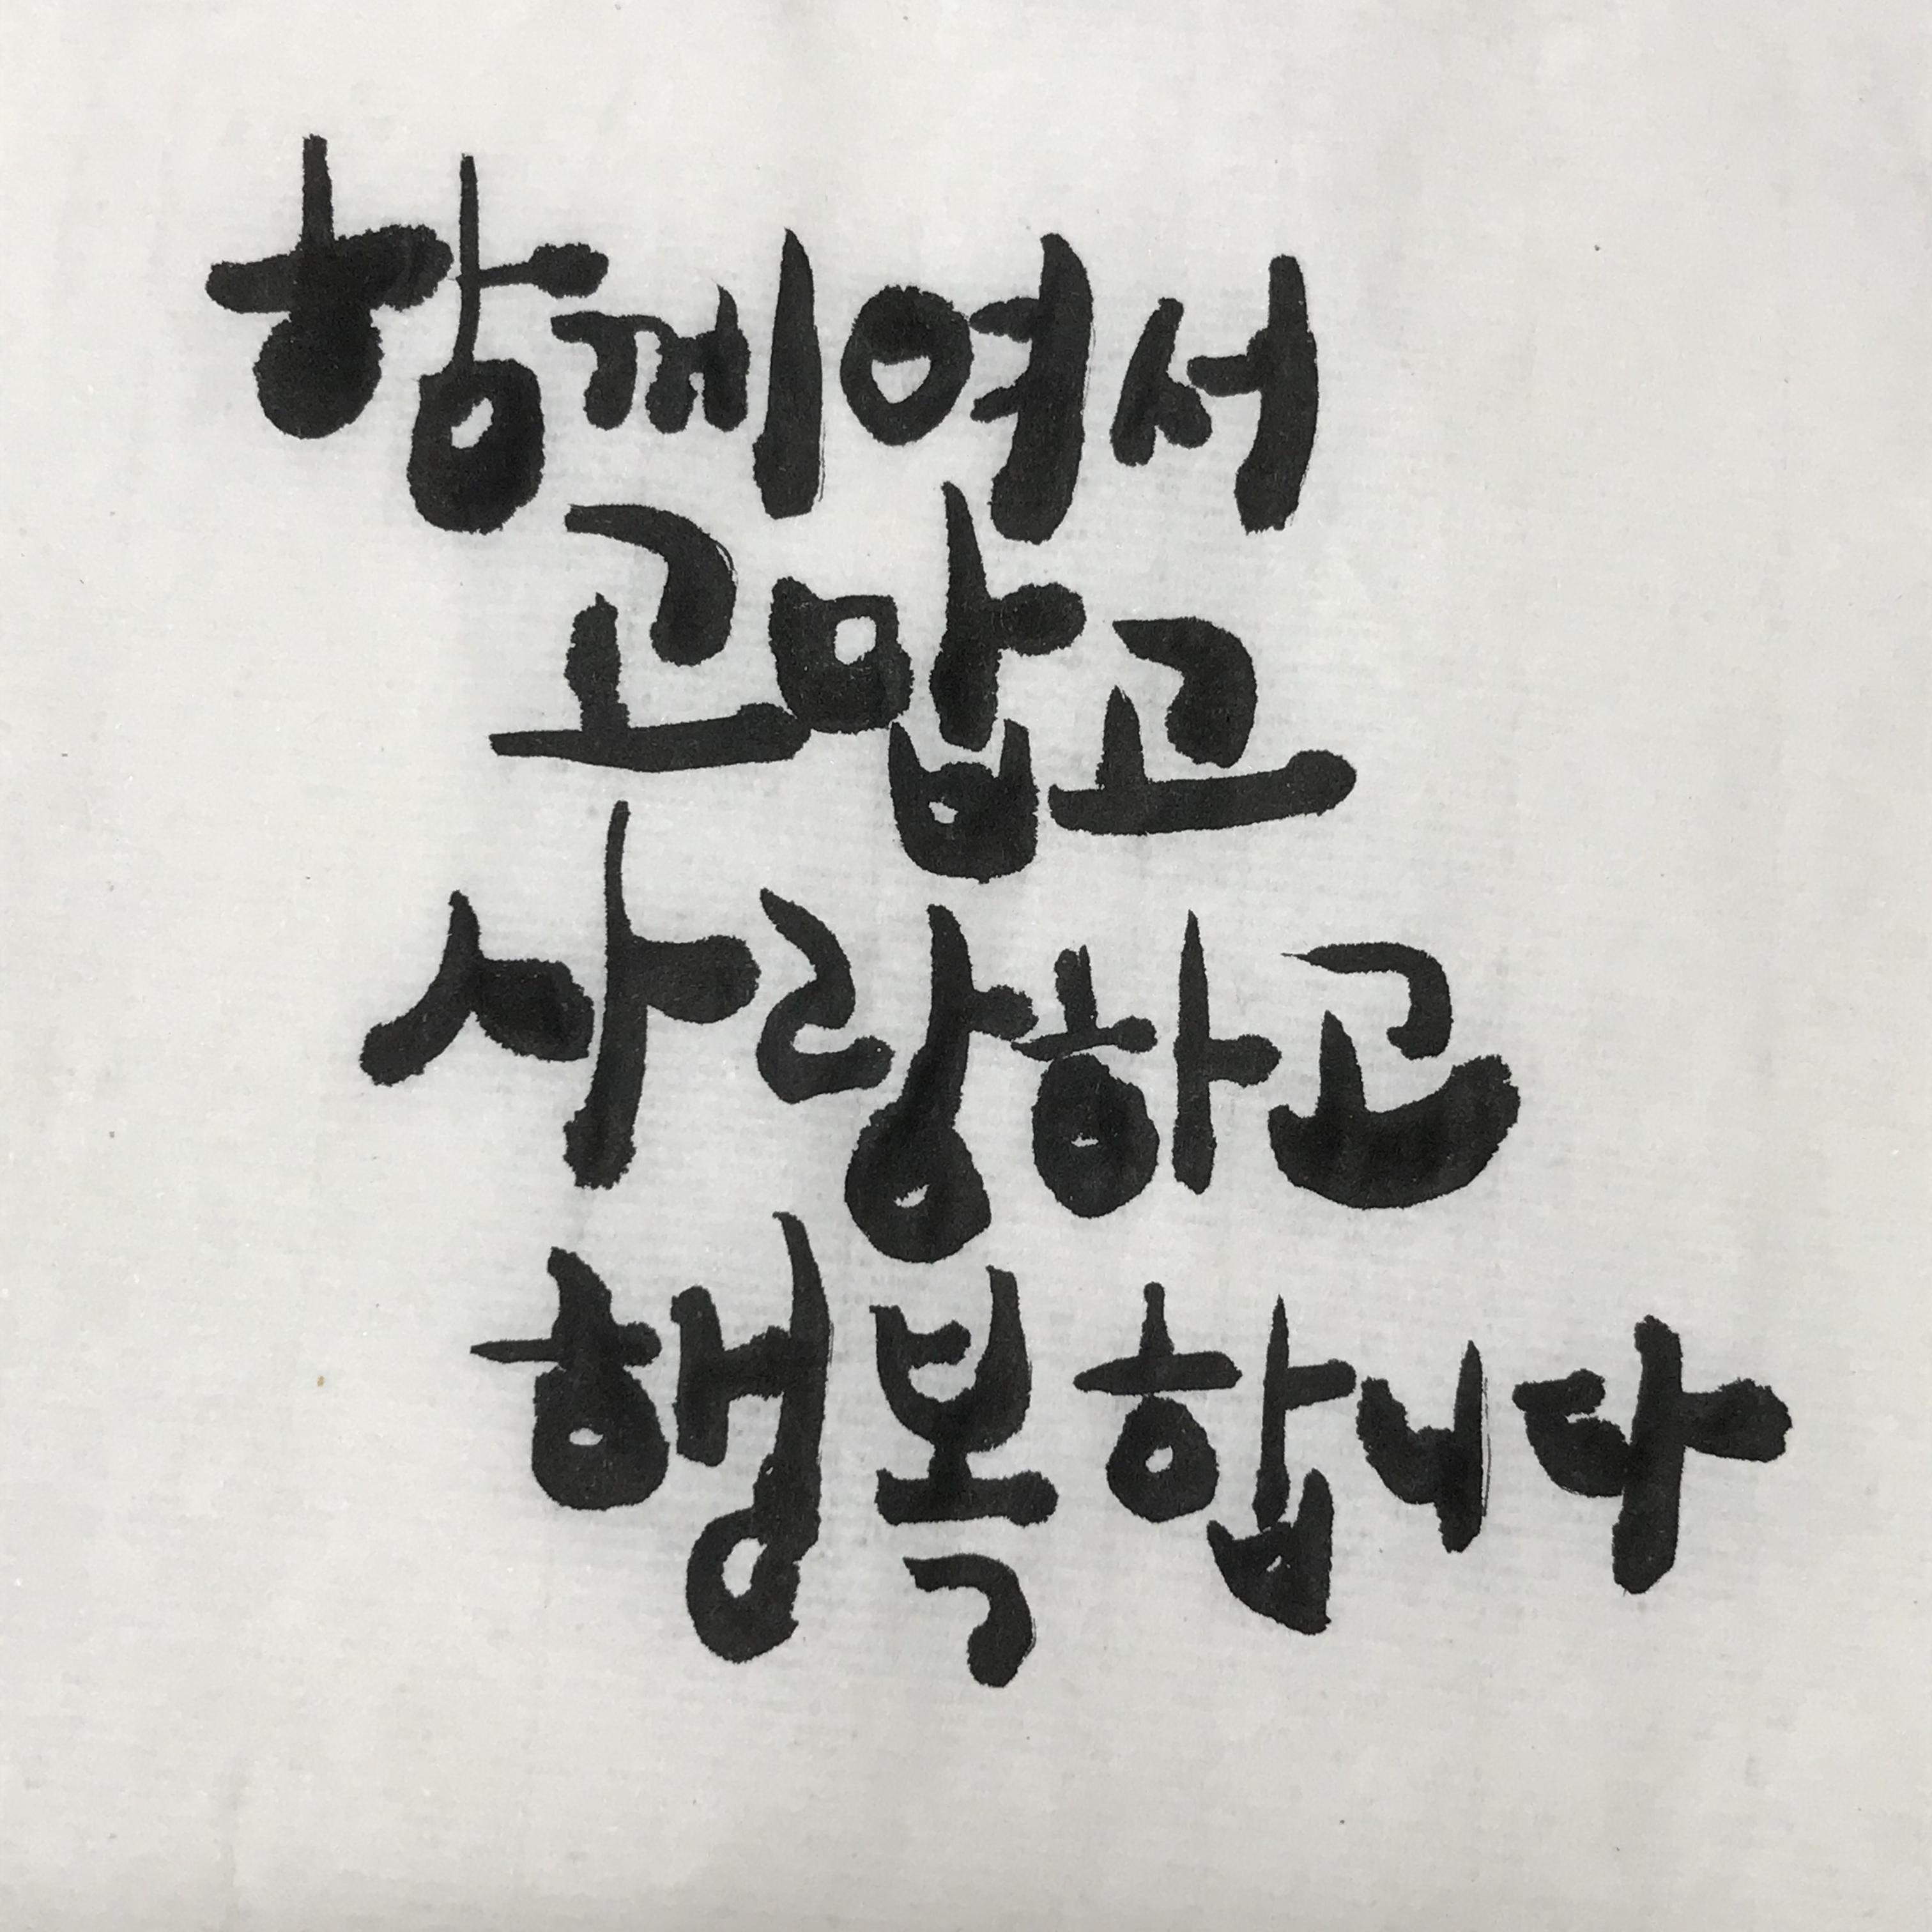 함께여서
고맙고
사랑하고
행복합니다